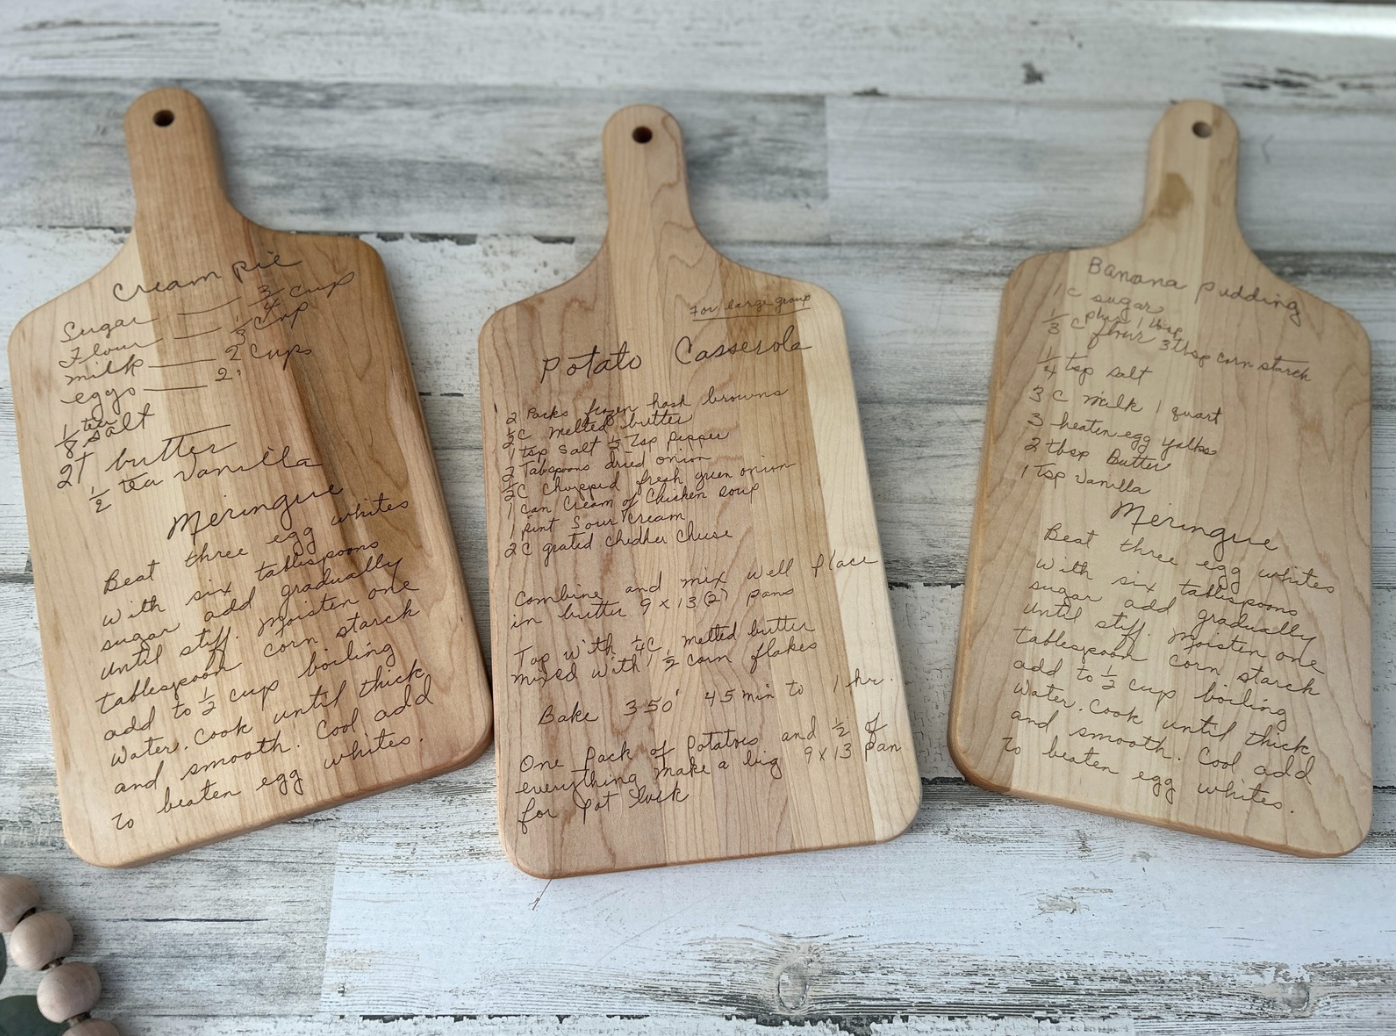 Cream pie
Sugar — 3/4 cup
Flour — 1/3 cup
milk — 2 cups
eggs — 2
1/8 tea salt
2T butter
1/2 tea Vanilla
Meringue
Beat three egg whites
with six tablespoons
sugar add gradually
until stiff. Moisten one
tablespoon corn starch
add to 1/2 cup boiling
water. Cook until thick
and smooth. Cool add
to beaten egg whites.
For large group
Potato Casserole
2 Packs frozen hash browns
1/2 C melted butter
1 tsp salt 1/2 Tsp pepper
2 Tabspoons dried onion
1/2 C chopped fresh green onion
1 can Cream of Chicken soup
1 pint Sour Cream
2 C grated chedher cheese
Combine and mix well place
in butter 9x13 (2) pans
Top with 1/4 C melted butter
mixed with 1/2 corn flakes
Bake 350° 45 min to 1 hr.
One pack of potatoes and 1/2 of
everything make a big 9x13 pan
for pot luck
Banana pudding
1 C sugar
plus 1 tbsp
1/3 C flour 3 tbsp corn starch
1/4 tsp salt
3 C milk 1 quart
3 beaten egg yolks
2 tbsp Butter
1 Tsp Vanilla
Meringue
Beat three egg whites
with six tablespoons
sugar add gradually
until stiff. Moisten one
tablespoon corn starch
add to 1/2 cup boiling
water. Cook until thick
and smooth. Cool add
to beaten egg whites.